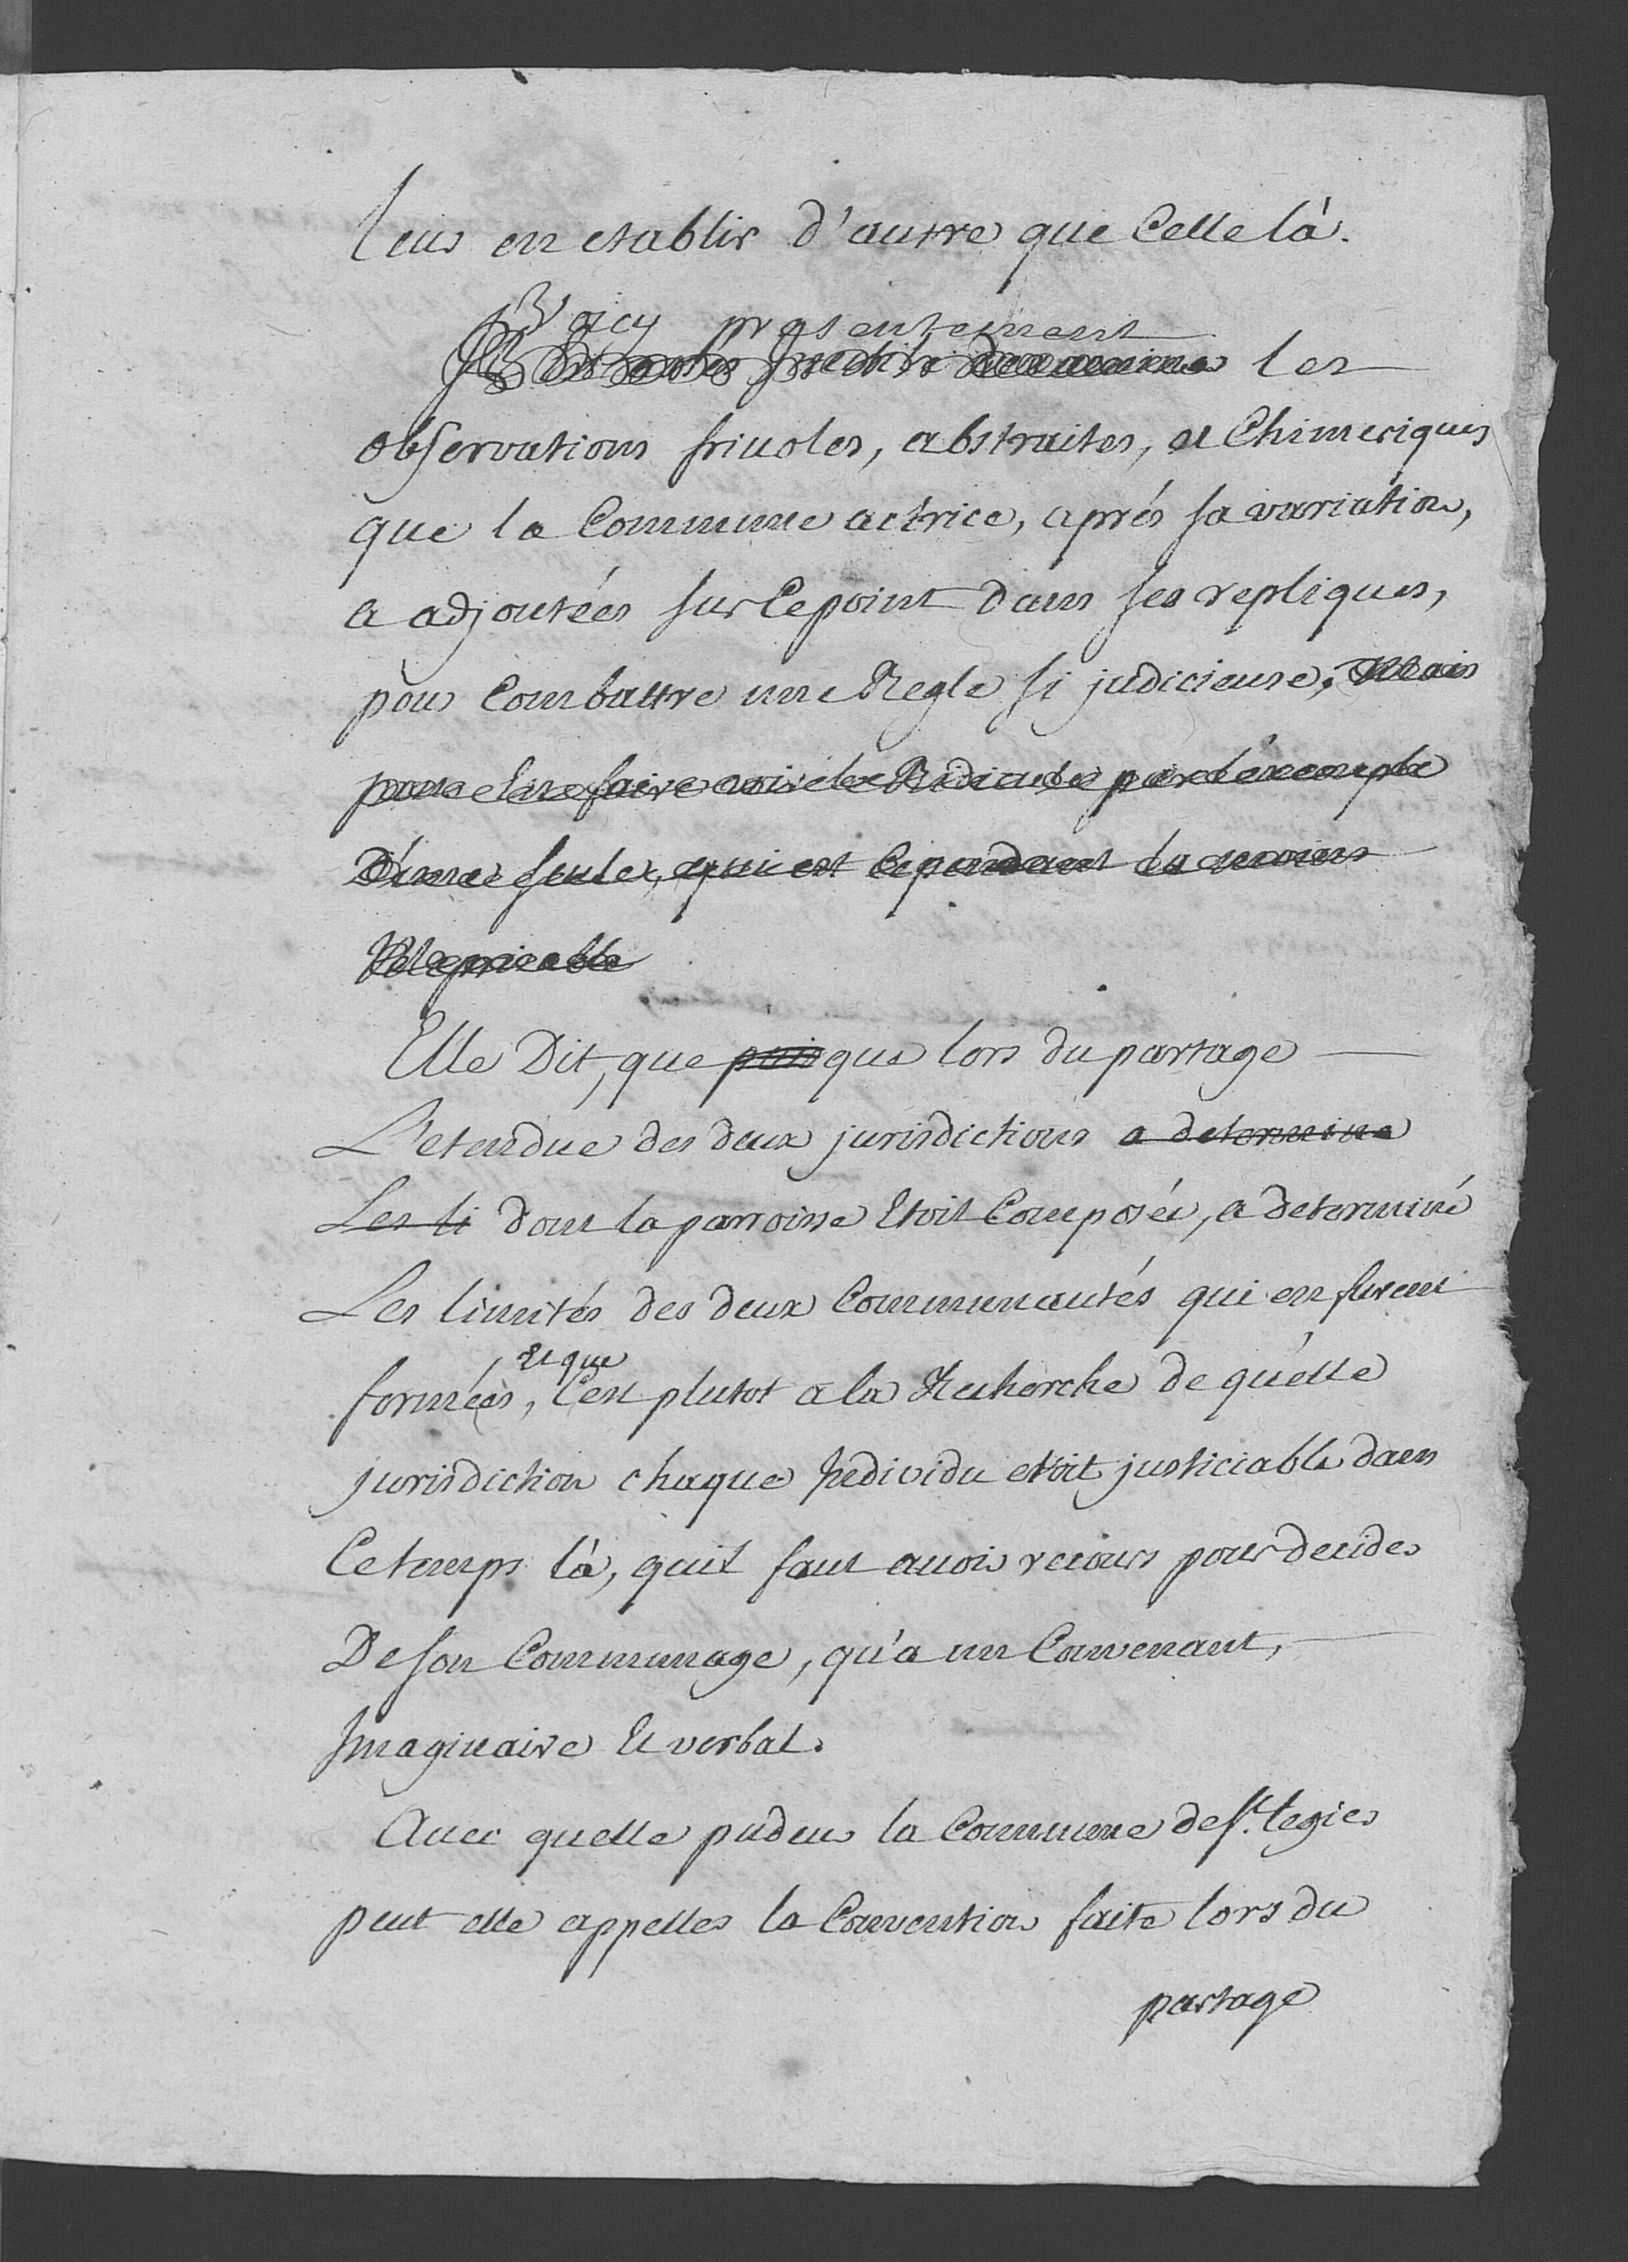 leur en etablir d'autre que Celle là.
Voicy presentement
les
observations frivoles, abstraites, et Chimeriques
que la Commune actrice, aprés sa variation,
a adjoutées sur Ce point dans ses repliques,
pour Combattre une Regle si judicieuse. Mais
pour en faire voir le Ridicule par l'éxemple
D'une seule, qui est Cependant la moins
Meprisable
Elle Dit, que puisque lors du partage
L'etendue des deux jurisdictions a determine
Les li dont la parroisse Etoit Composée, a determiné
Les limités des deux Communautés qui en furent
Et que
formées, C'est plutot a la Recherche de quelle
jurisdiction chaque Individu etoit justiciable dans
Ce temps là, quil faut avoir recours pour decider
De son Communage, qu'a un Convenant,
Imaginaire Et verbal.
Avec quelle pudeur la Commune de St. Legier
peut elle appeller la Convention faite lors du
partage